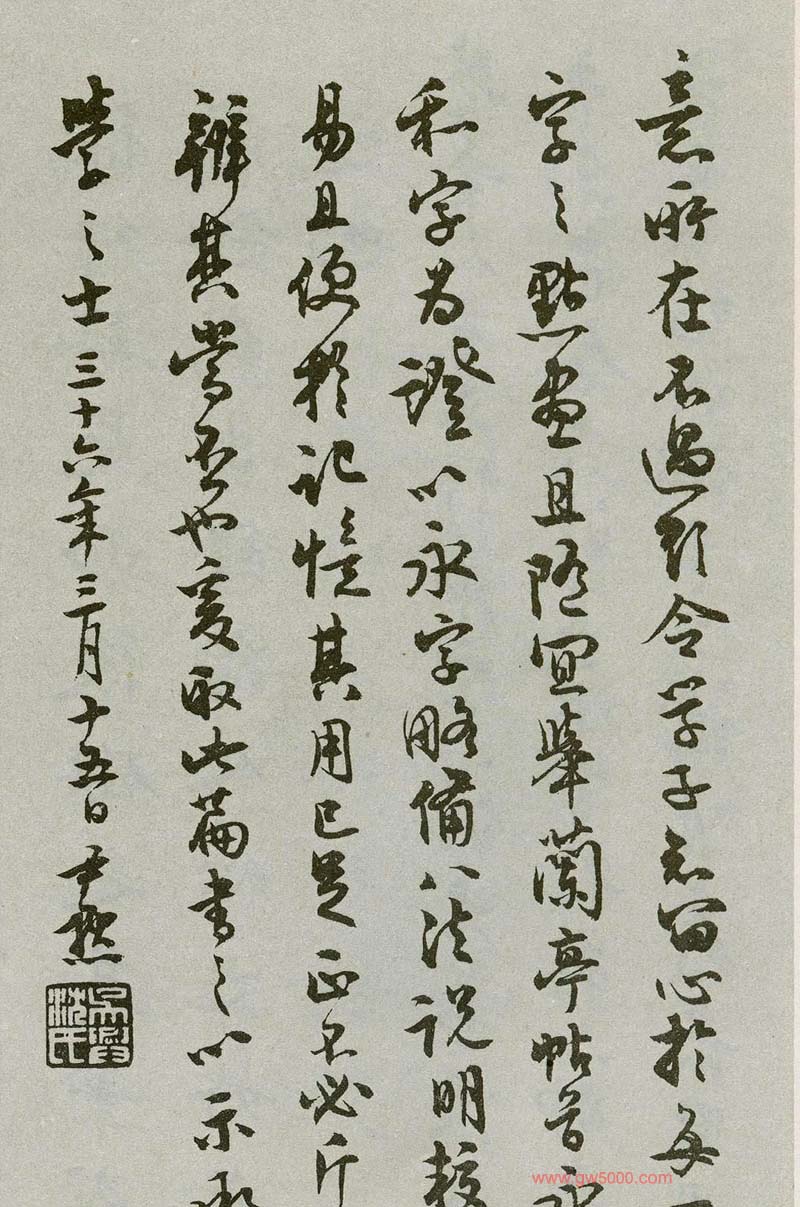 意所在不過欲令学子知留心於每一
字之點畫且隨宜舉蘭亭帖首永
和字為證以永字略備八法説明較
易且便於記憶其用已足正不必斤
辨其當否也爰取此篇書之以示承
學之士三十六年三月十五日尹默
吳興沈氏
www.gw5000.com